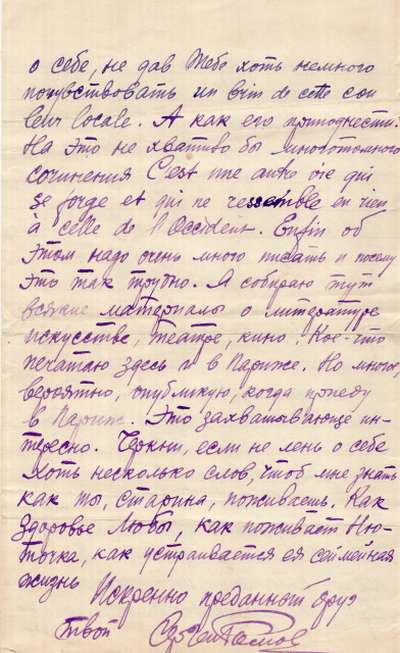 о себе, не дав Тебе хоть немного
почувствовать un brin de cette cou
leur locale. А как его приподнести?
На это не хватило бы многотомного
сочинения C'est une autre vie qui
se forge et qui ne ressemble en rien
à celle de l'Occident. Enfin об
этом надо очень много писать и потому
это так трудно. Я собираю тут
всякие материалы о литературе
искусстве, театре, кино. Кое-что
печатаю здесь и в Париже. Но многое,
вероятно, опубликую, когда приеду
в Париж. Это захватывающе ин-
тересно. Черкни, если не лень о себе
хоть несколько слов, чтоб мне знать
как ты, старина, поживаешь. Как
здоровье Любы, как поживает Ню-
точка, как устраивается ея семейная
жизнь
Искренно преданный друг
твой